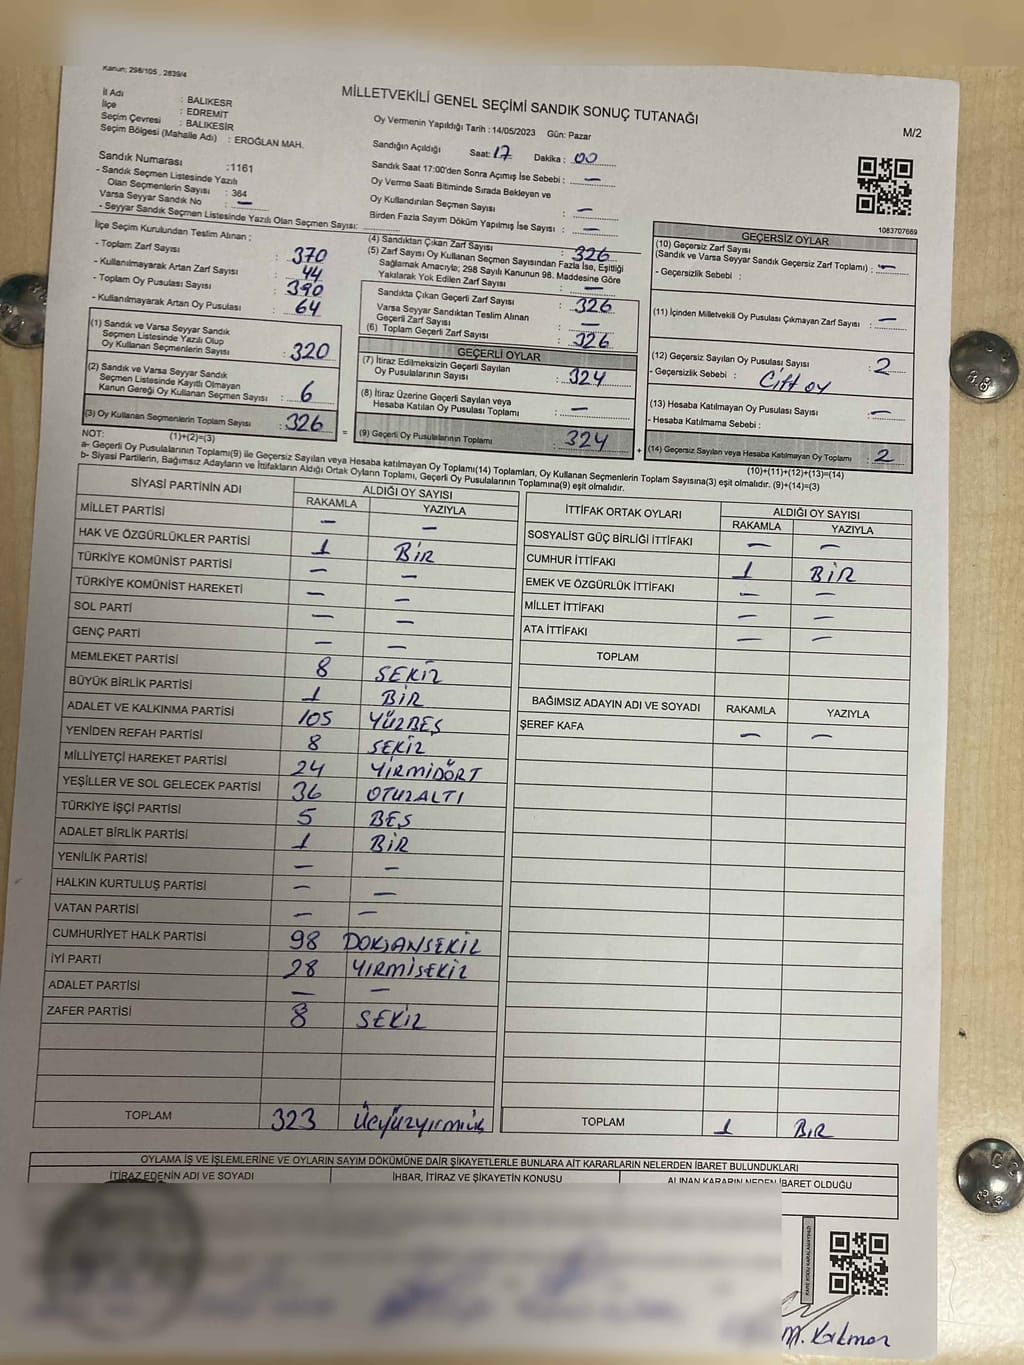 Kanun; 298/105 , 2839/4
MİLLETVEKİLİ GENEL SEÇİMİ SANDIK SONUÇ TUTANAĞI
M/2
İl Adı : BALIKESR
İlçe : EDREMIT
Seçim Çevresi : BALIKESİR
Seçim Bölgesi (Mahalle Adı) : EROĞLAN MAH.
Sandık Numarası :1161
- Sandık Seçmen Listesinde Yazılı
Olan Seçmenlerin Sayısı : 364
Varsa Seyyar Sandık No : —
- Seyyar Sandık Seçmen Listesinde Yazılı Olan Seçmen Sayısı:
Oy Vermenin Yapıldığı Tarih : 14/05/2023 Gün: Pazar
Sandığın Açıldığı Saat: 17 Dakika : 00
Sandık Saat 17:00'den Sonra Açımış İse Sebebi : —
Oy Verme Saati Bitiminde Sırada Bekleyen ve
Oy Kullandırılan Seçmen Sayısı : —
Birden Fazla Sayım Döküm Yapılmış İse Sayısı : —
1083707669
İlçe Seçim Kurulundan Teslim Alınan ;
- Toplam Zarf Sayısı : 370
- Kullanılmayarak Artan Zarf Sayısı : 44
- Toplam Oy Pusulası Sayısı : 390
- Kullanılmayarak Artan Oy Pusulası : 64
(1) Sandık ve Varsa Seyyar Sandık
Seçmen Listesinde Yazılı Olup
Oy Kullanan Seçmenlerin Sayısı : 320
(2) Sandık ve Varsa Seyyar Sandık
Seçmen Listesinde Kayıtlı Olmayan
Kanun Gereği Oy Kullanan Seçmen Sayısı : 6
(3) Oy Kullanan Seçmenlerin Toplam Sayısı : 326
(1)+(2)=(3)
(4) Sandıktan Çıkan Zarf Sayısı : 326
(5) Zarf Sayısı Oy Kullanan Seçmen Sayısından Fazla İse, Eşitliği
Sağlamak Amacıyla; 298 Sayılı Kanunun 98. Maddesine Göre
Yakılarak Yok Edilen Zarf Sayısı : —
Sandıkta Çıkan Geçerli Zarf Sayısı : 326
Varsa Seyyar Sandıktan Teslim Alınan
Geçerli Zarf Sayısı : —
(6) Toplam Geçerli Zarf Sayısı : 326
GEÇERLİ OYLAR
(7) İtiraz Edilmeksizin Geçerli Sayılan
Oy Pusulalarının Sayısı : 324
(8) İtiraz Üzerine Geçerli Sayılan veya
Hesaba Katılan Oy Pusulası Toplamı : —
= (9) Geçerli Oy Pusulalarının Toplamı : 324
GEÇERSİZ OYLAR
(10) Geçersiz Zarf Sayısı
(Sandık ve Varsa Seyyar Sandık Geçersiz Zarf Toplamı) : —
- Geçersizlik Sebebi :
(11) İçinden Milletvekili Oy Pusulası Çıkmayan Zarf Sayısı : —
(12) Geçersiz Sayılan Oy Pusulası Sayısı : 2
- Geçersizlik Sebebi : Çift oy
(13) Hesaba Katılmayan Oy Pusulası Sayısı : —
- Hesaba Katılmama Sebebi :
+ (14) Geçersiz Sayılan veya Hesaba Katılmayan Oy Toplamı : 2
(10)+(11)+(12)+(13)=(14)
NOT:
a- Geçerli Oy Pusulalarının Toplamı(9) ile Geçersiz Sayılan veya Hesaba katılmayan Oy Toplamı(14) Toplamları, Oy Kullanan Seçmenlerin Toplam Sayısına(3) eşit olmalıdır. (9)+(14)=(3)
b- Siyasi Partilerin, Bağımsız Adayların ve İttifakların Aldığı Ortak Oyların Toplamı, Geçerli Oy Pusulalarının Toplamına(9) eşit olmalıdır.
SİYASİ PARTİNİN ADI ALDIĞI OY SAYISI
RAKAMLA YAZIYLA
MİLLET PARTİSİ — —
HAK VE ÖZGÜRLÜKLER PARTİSİ 1 BİR
TÜRKİYE KOMÜNİST PARTİSİ — —
TÜRKİYE KOMÜNİST HAREKETİ — —
SOL PARTİ — —
GENÇ PARTİ — —
MEMLEKET PARTİSİ 8 SEKİZ
BÜYÜK BİRLİK PARTİSİ 1 BİR
ADALET VE KALKINMA PARTİSİ 105 YÜZBEŞ
YENİDEN REFAH PARTİSİ 8 SEKİZ
MİLLİYETÇİ HAREKET PARTİSİ 24 YİRMİDÖRT
YEŞİLLER VE SOL GELECEK PARTİSİ 36 OTUZALTI
TÜRKİYE İŞÇİ PARTİSİ 5 BEŞ
ADALET BİRLİK PARTİSİ 1 BİR
YENİLİK PARTİSİ — —
HALKIN KURTULUŞ PARTİSİ — —
VATAN PARTİSİ — —
CUMHURİYET HALK PARTİSİ 98 DOKSANSEKİZ
İYİ PARTİ 28 YIRMİSEKİZ
ADALET PARTİSİ — —
ZAFER PARTİSİ 8 SEKİZ
TOPLAM 323 Üçyüzyirmiüç
İTTİFAK ORTAK OYLARI ALDIĞI OY SAYISI
RAKAMLA YAZIYLA
SOSYALIST GÜÇ BİRLİĞİ İTTİFAKI — —
CUMHUR İTTİFAKI 1 BİR
EMEK VE ÖZGÜRLÜK İTTİFAKI — —
MİLLET İTTİFAKI — —
ATA İTTİFAKI — —
TOPLAM
BAĞIMSIZ ADAYIN ADI VE SOYADI RAKAMLA YAZIYLA
ŞEREF KAFA — —
TOPLAM 1 BİR
OYLAMA İŞ VE İŞLEMLERİNE VE OYLARIN SAYIM DÖKÜMÜNE DAİR ŞİKAYETLERLE BUNLARA AİT KARARLARIN NELERDEN İBARET BULUNDUKLARI
İTİRAZ EDENİN ADI VE SOYADI İHBAR, İTİRAZ VE ŞİKAYETİN KONUSU ALINAN KARARIN NEDEN İBARET OLDUĞU